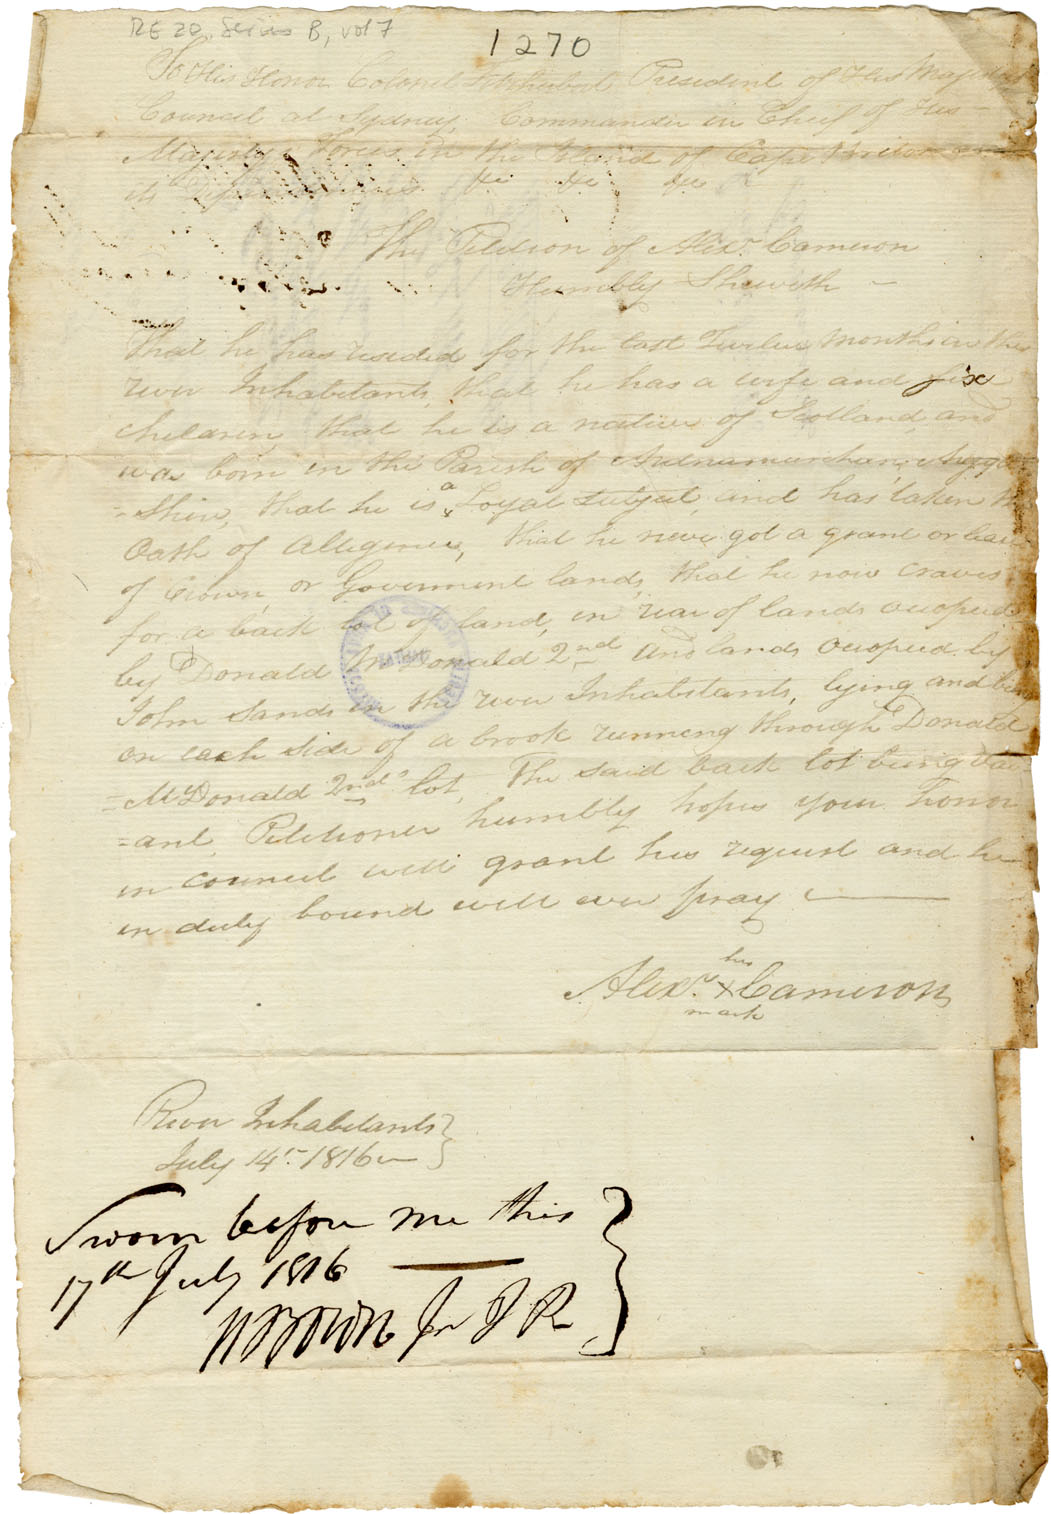 RE 20, Series B, vol 7
1270
To His Honor Colonel Fitzherbert President of His Majestys
Council at Sydney, Commander in Chief of His
Majestys Forces in the Island of Cape Breton and
its Dependencies &c &c &c
The Petition of Alexr. Cameron
Humbly Sheweth –
That he has resided for the last Twelve Months in the
river Inhabitants, that he has a wife and six
children, that he is a native of Scotland and
was born in the Parish of Ardnamurchan, Argyle
=Shire, that he is a Loyal Subject, and has taken the
Oath of Allegence, that he never got a grant or lease
of Crown, or Goverment lands, that he now craves
for a back lot of land, in rear of lands occupied
by Donald McDonald 2nd and lands occupied by
John Sands in the river Inhabitants, lying and being
on each side of a brook running through Donald
=McDonald 2nds lot, The said back lot being vac=
=ant, Petitioner humbly hopes your honor
in council will grant his request and he
in duty bound will ever pray
his
Alexr. X Cameron
mark
River Inhabitants
July 14th 1816
Sworn before me this
17th July 1816
Brown Jn J P